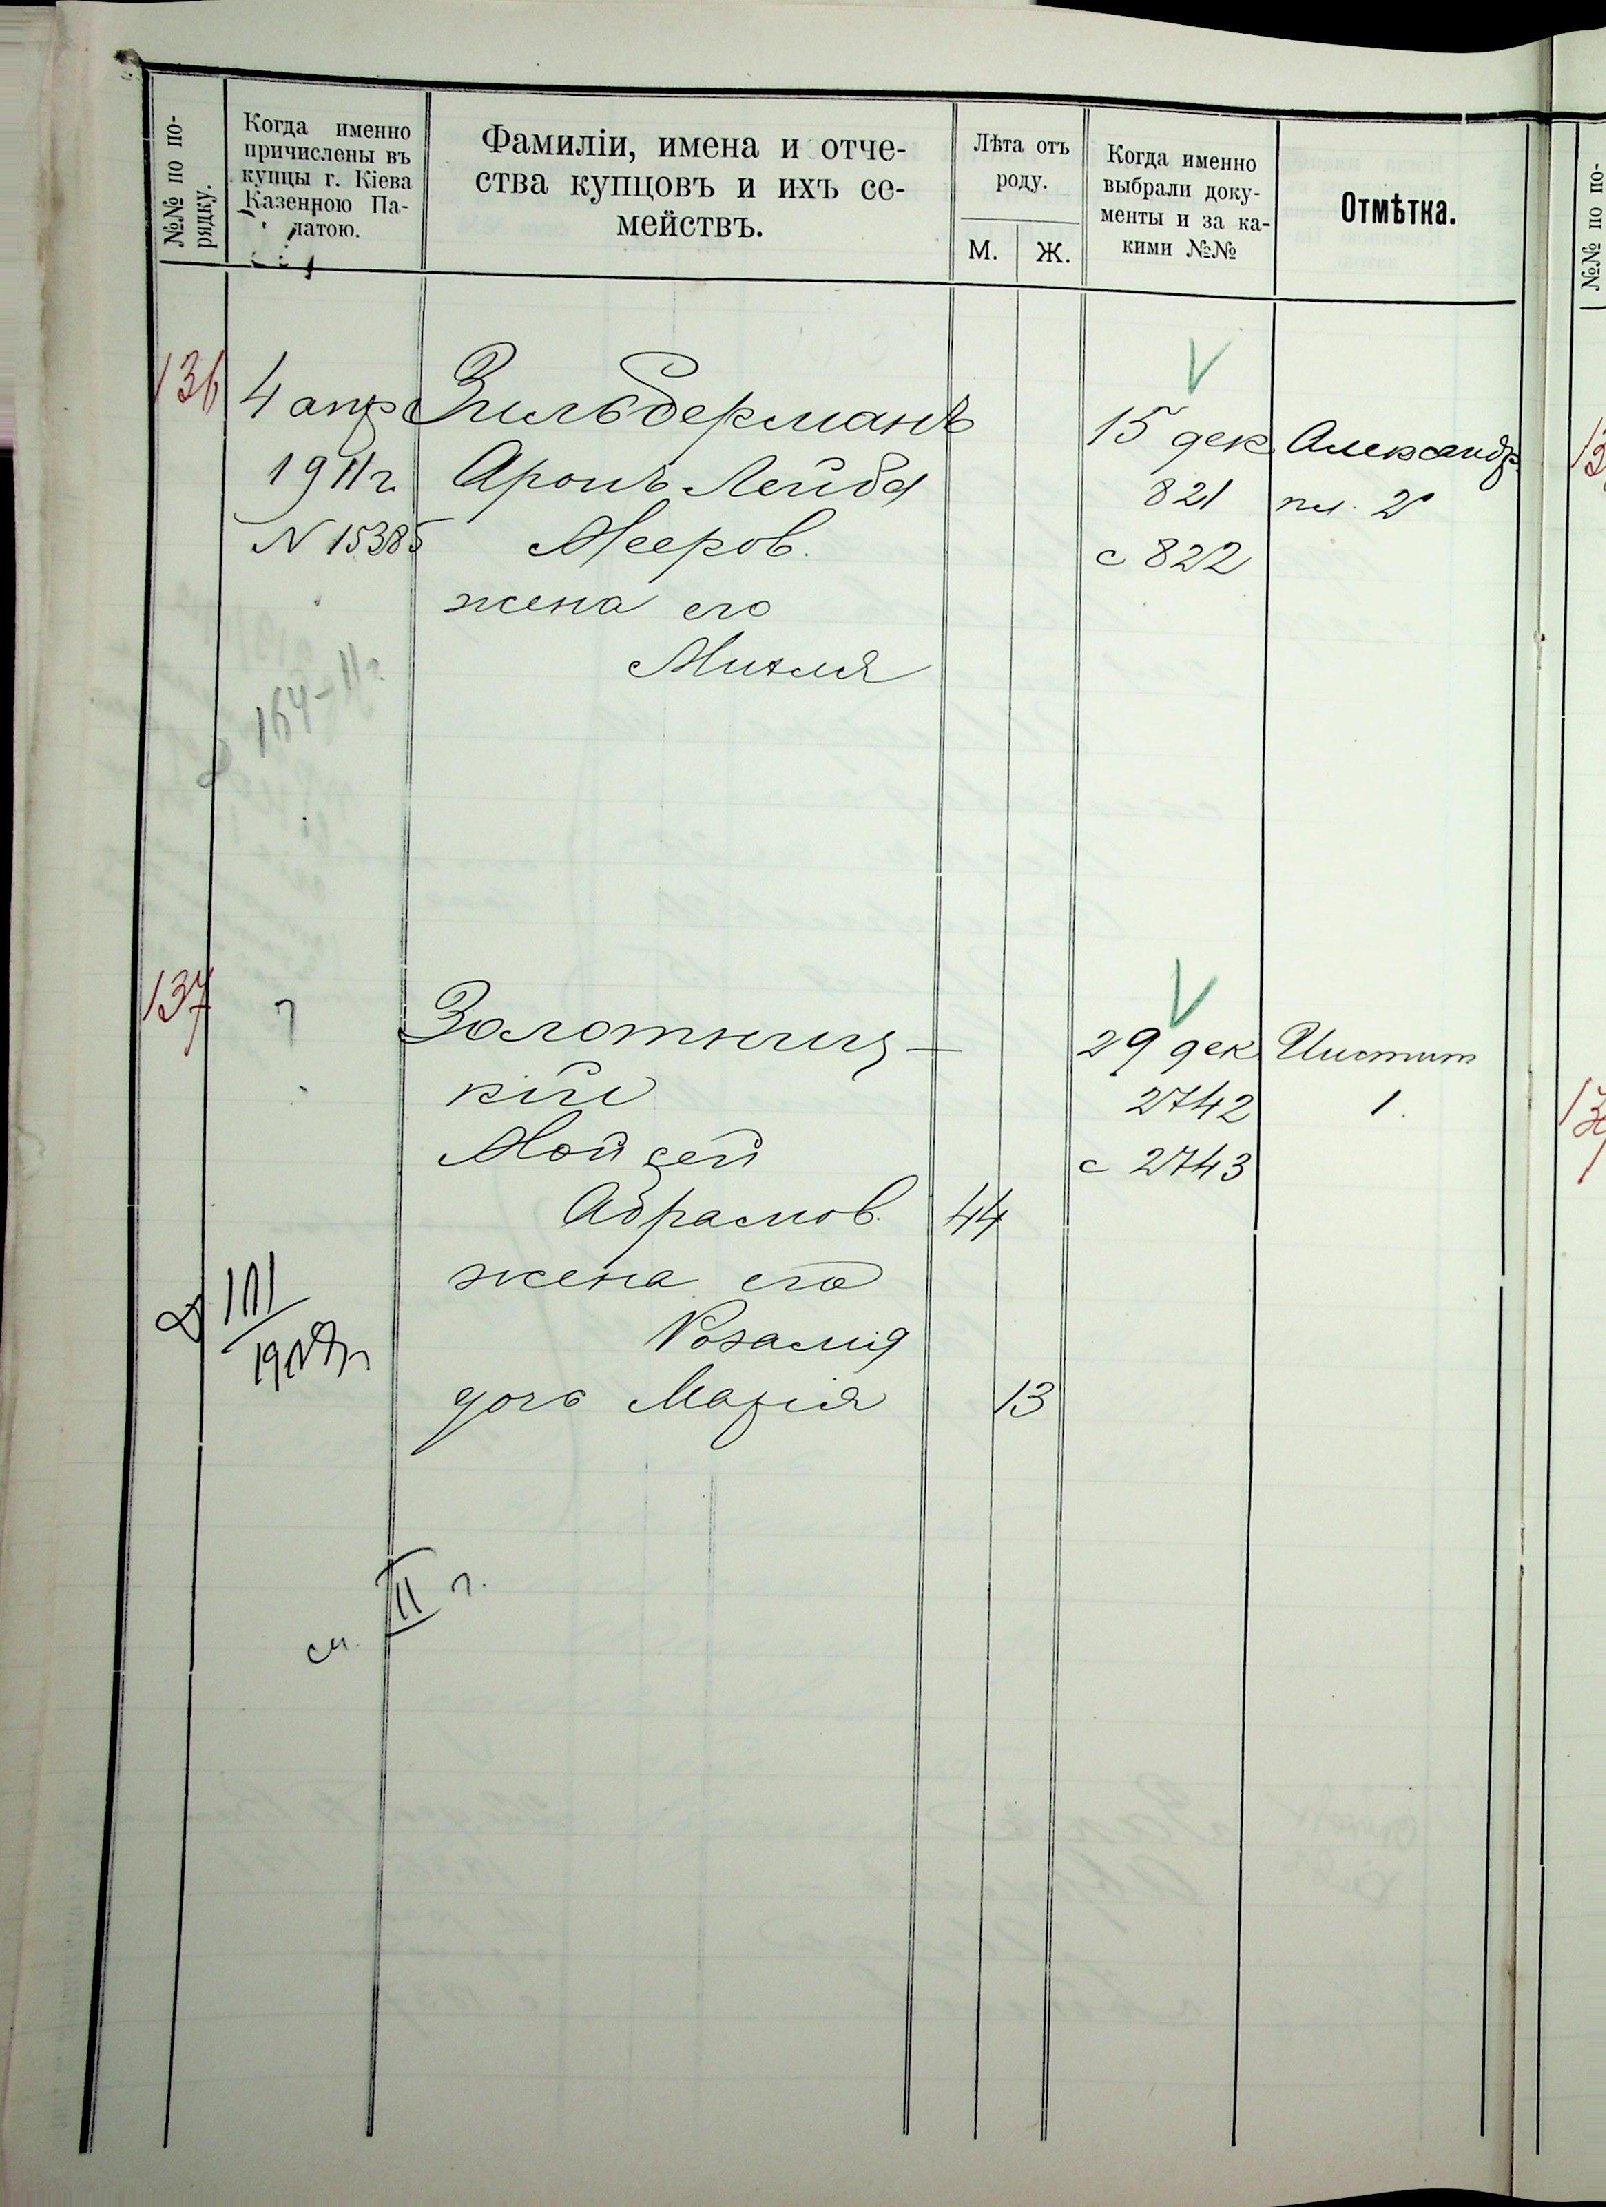 №№ по по-
рядку.
Когда именно
причислены въ
купцы г. Кіева
Казенною Па-
латою.
Фамиліи, имена и отче-
ства купцовъ и ихъ се-
мействъ.
Лѣта отъ
роду.
М.
Ж.
Когда именно
выбрали доку-
менты и за ка-
кими №№
Отмѣтка.
№№ по по-
136
4 апр
1911 г.
N 15385
Зильберманъ
Аронъ Лейба
Мееров.
жена его
15 дек
821
с 822
Александр.
пл. 2
164-11 г.
137
Золотниц-
кій
Мойсей
Абрамов. 44
жена его
Розалія
дочь Марія 13
29 дек
2742
с 2743
Инстит
1.
см. II г.